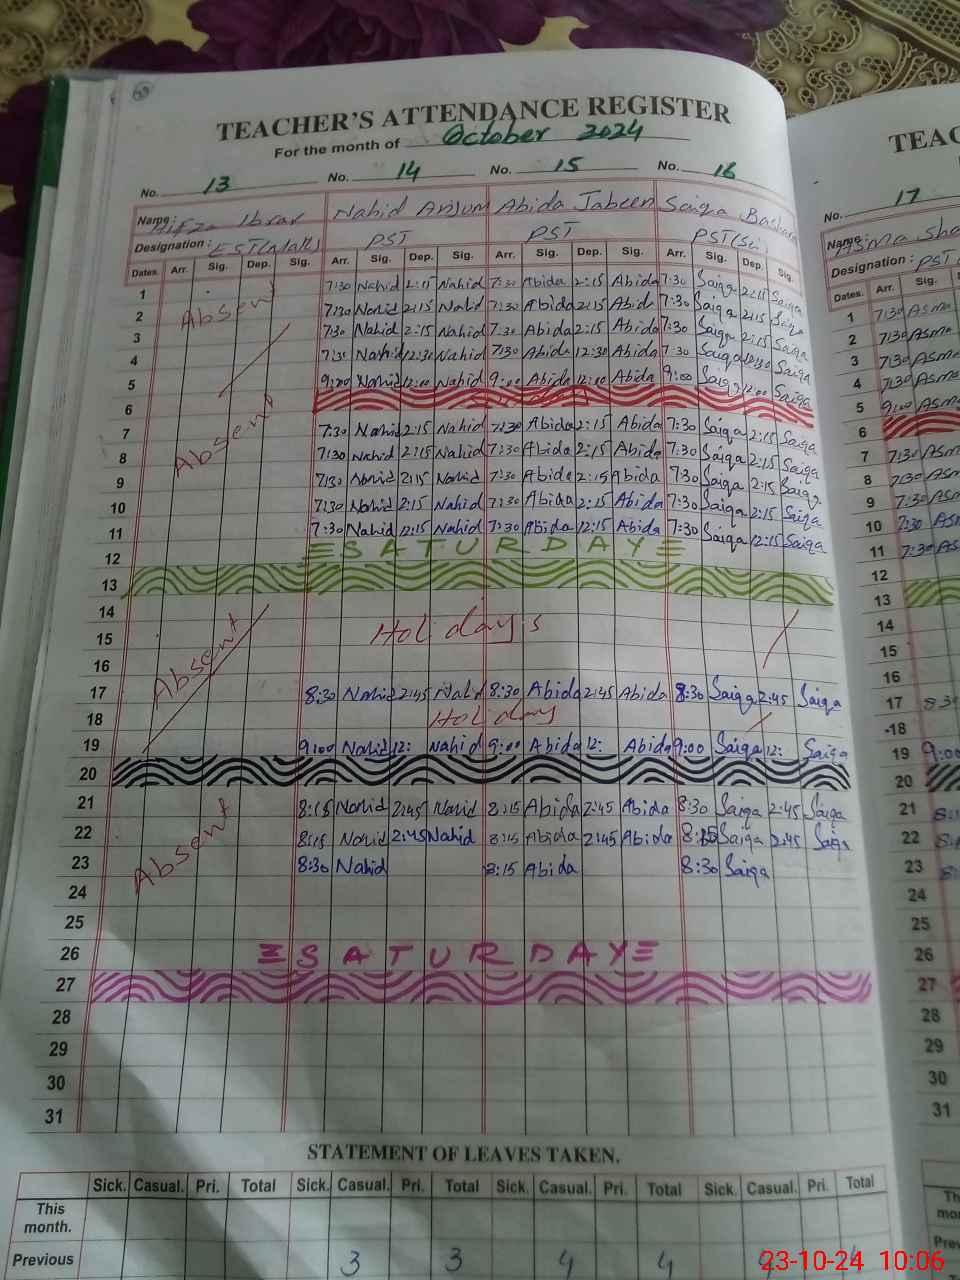 TEACHER'S ATTENDANCE REGISTER
For the month of October 2024
No. 13 No. 14 No. 15 No. 16
Name: Hifza Ibrar Nahid Anjum Abida Jabeen Saiqa
Designation: EST(Math) PST PST PST(Sc)
Dates. Arr. Sig. Dep. Sig. Arr. Sig. Dep. Sig. Arr. Sig. Dep. Sig. Arr. Sig. Dep. Sig.
Absent
1 7:30 Nahid 2:15 Nahid 7:30 Abida 2:15 Abida 7:30 Saiqa 2:15 Saiqa
2 7:30 Nahid 2:15 Nahid 7:30 Abida 2:15 Abida 7:30 Saiqa 2:15 Saiqa
3 7:30 Nahid 2:15 Nahid 7:30 Abida 2:15 Abida 7:30 Saiqa 2:15 Saiqa
4 7:30 Nahid 12:30 Nahid 7:30 Abida 12:30 Abida 7:30 Saiqa 12:30 Saiqa
5 9:00 Nahid 12:00 Nahid 9:00 Abida 12:00 Abida 9:00 Saiqa 12:00 Saiqa
6
Absent
7 7:30 Nahid 2:15 Nahid 7:30 Abida 2:15 Abida 7:30 Saiqa 2:15 Saiqa
8 7:30 Nahid 2:15 Nahid 7:30 Abida 2:15 Abida 7:30 Saiqa 2:15 Saiqa
9 7:30 Nahid 2:15 Nahid 7:30 Abida 2:15 Abida 7:30 Saiqa 2:15 Saiqa
10 7:30 Nahid 2:15 Nahid 7:30 Abida 2:15 Abida 7:30 Saiqa 2:15 Saiqa
11 7:30 Nahid 12:15 Nahid 7:30 Abida 12:15 Abida 7:30 Saiqa 12:15 Saiqa
12 SATURDAY
13
14
15 Holidays
16
Absent
17 8:30 Nahid 2:45 Nahid 8:30 Abida 2:45 Abida 8:30 Saiqa 2:45 Saiqa
18 Holiday
19 9:00 Nahid 12: Nahid 9:00 Abida 12: Abida 9:00 Saiqa 12: Saiqa
20
21 8:15 Nahid 2:45 Nahid 8:15 Abida 2:45 Abida 8:30 Saiqa 2:45 Saiqa
22 8:15 Nahid 2:45 Nahid 8:15 Abida 2:45 Abida 8:15 Saiqa 2:45 Saiqa
Absent
23 8:30 Nahid 8:15 Abida 8:30 Saiqa
24
25
26 SATURDAY
27
28
29
30
31
STATEMENT OF LEAVES TAKEN.
Sick. Casual. Pri. Total Sick. Casual. Pri. Total Sick. Casual. Pri. Total Sick. Casual. Pri. Total
This month.
Previous 3 3 4 4
TEAC
No. 17
Name: Asma
Designation: PST
Dates. Arr. Sig.
1 7:30 Asma
2 7:30 Asma
3 7:30 Asma
4 7:30 Asma
5 9:00 Asma
6
7 7:30 Asma
8 7:30 Asma
9 7:30 Asma
10 7:30 Asm
11 7:30 As
12
13
14
15
16
17 8:3
18
19 9:00
20
21
22
23
24
25
26
27
28
29
30
31
23-10-24 10:06